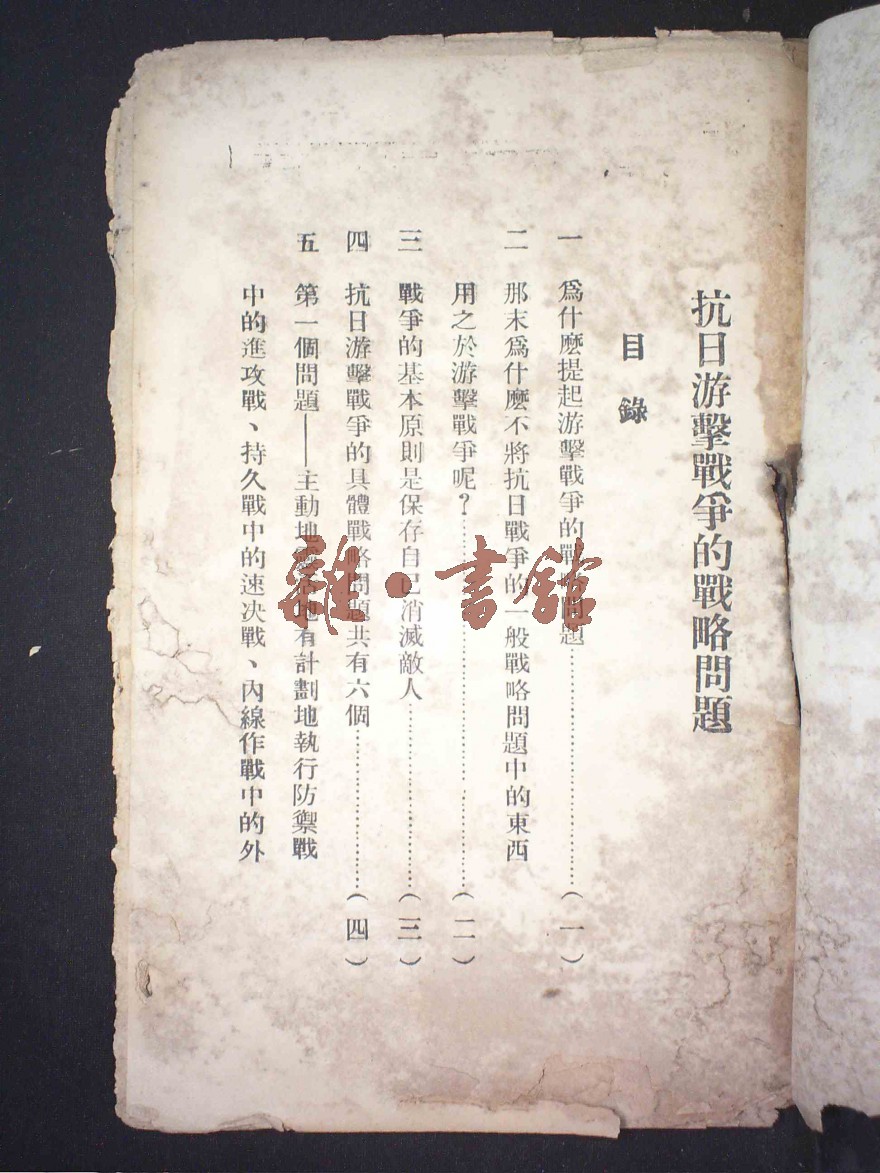 抗日游擊戰爭的戰略問題
目錄
一 爲什麽提起游擊戰爭的戰略問題……………………(一)
二 那末爲什麽不將抗日戰爭的一般戰略問題中的東西
用之於游擊戰爭呢？……………………(二)
三 戰爭的基本原則是保存自己消滅敵人……………………(三)
四 抗日游擊戰爭的具體戰略問題共有六個……………………(四)
五 第一個問題——主動地靈活地有計劃地執行防禦戰
中的進攻戰、持久戰中的速决戰、內線作戰中的外
雜·書館